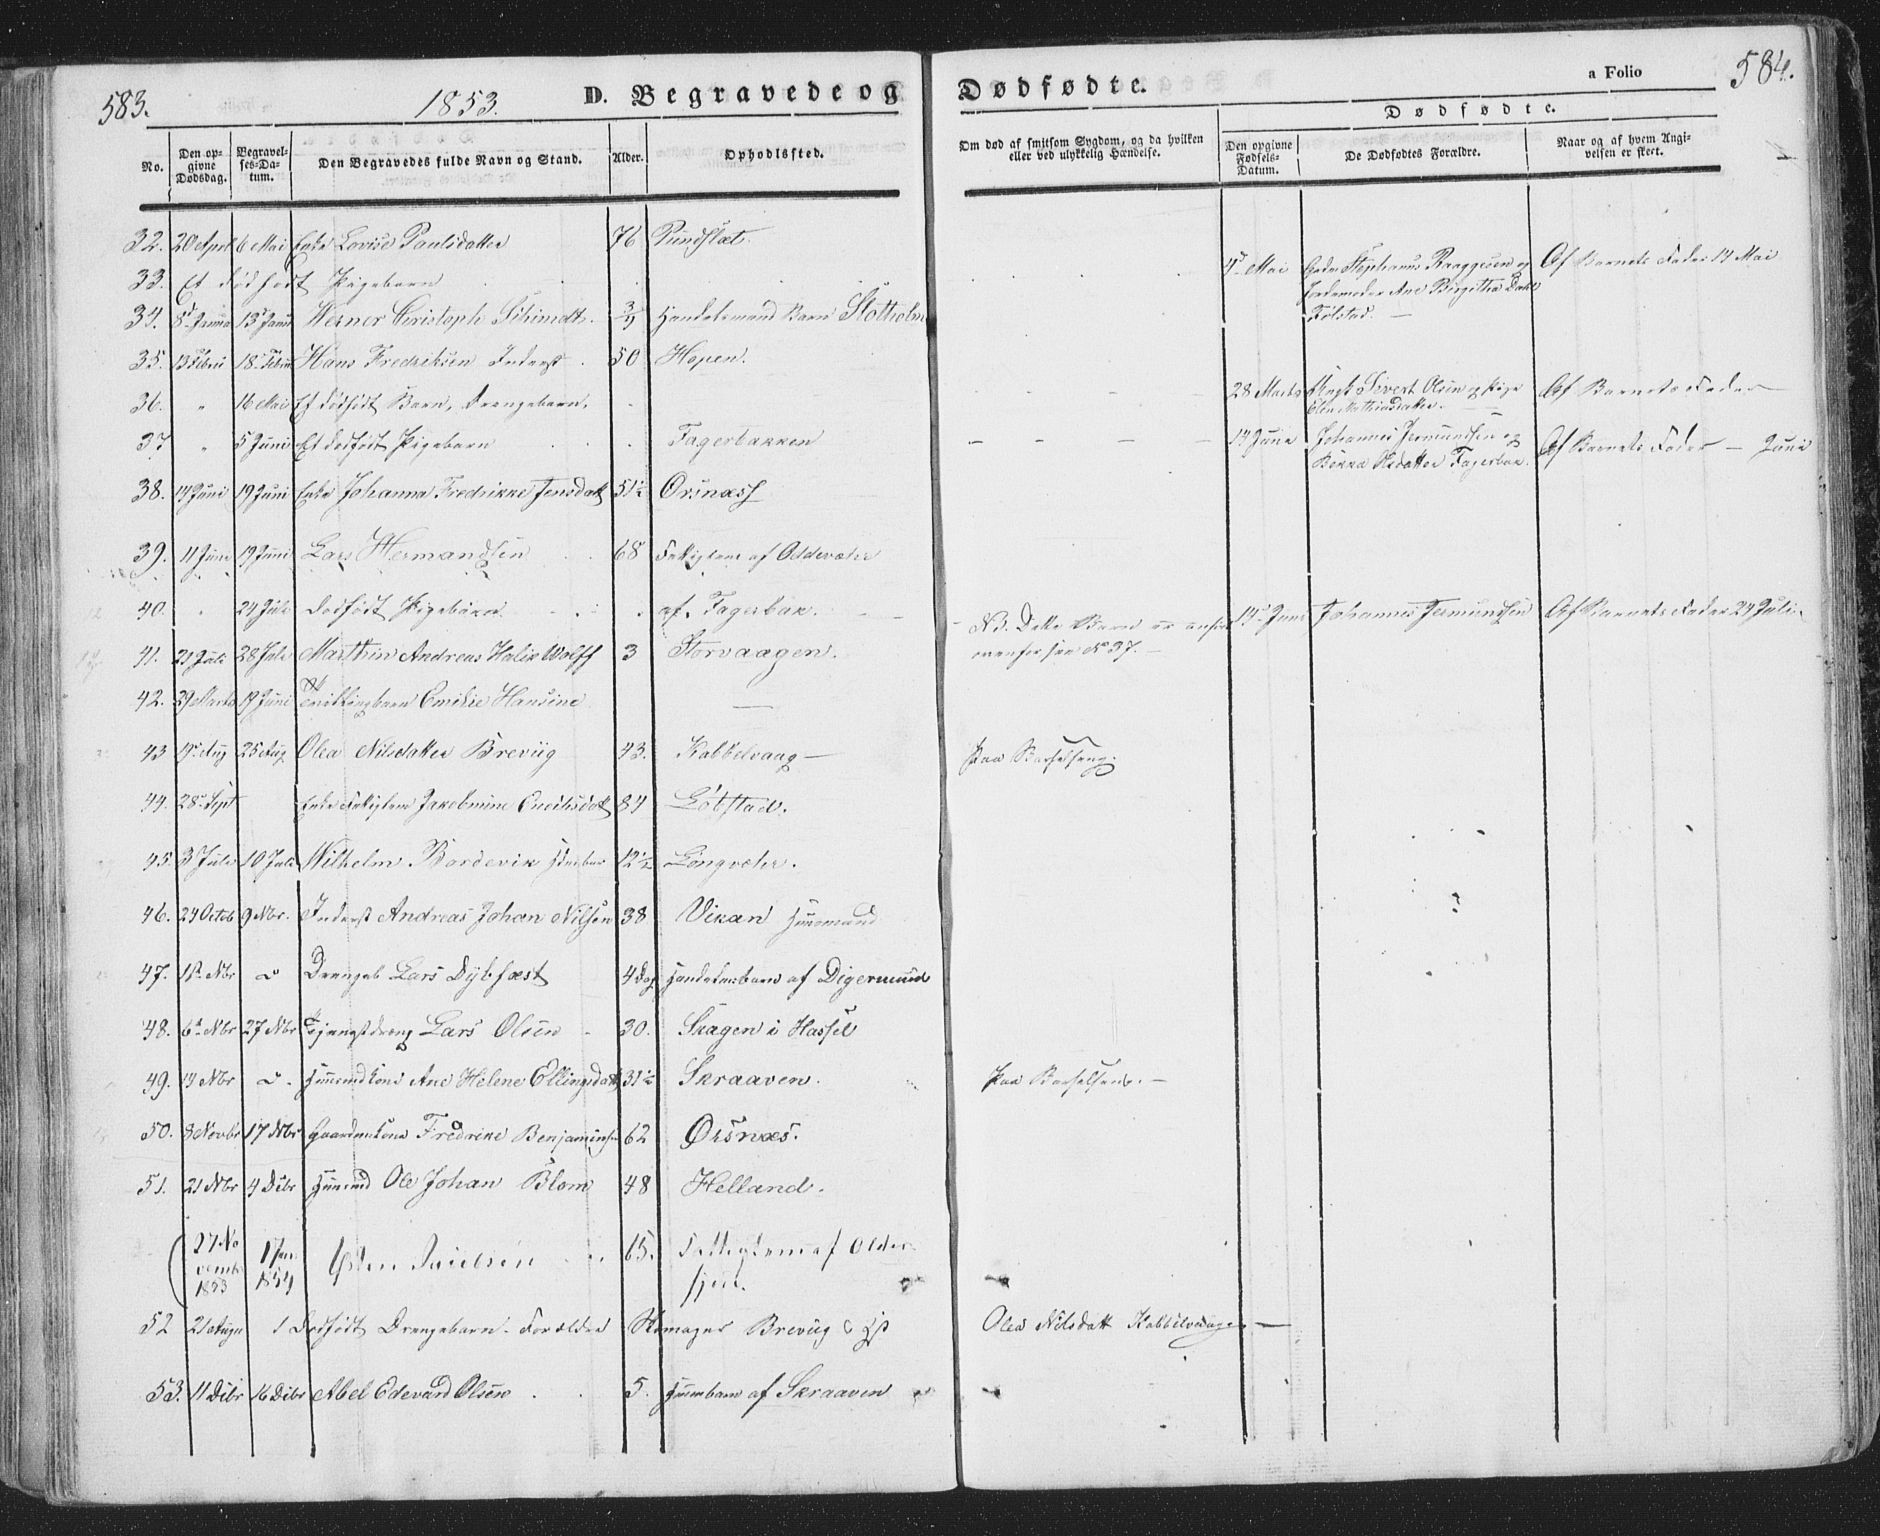 583.
1853.
D. Begravede og
Dødfødte.
a Folio
584.
No.
Den opgivne Dødsdag.
Begravelses-Datum.
Den Begravedes fulde Navn og Stand.
Alder.
Opholdssted.
Om død af smitsom Sygdom, og da hvilken eller ved ulykkelig Hændelse.
Dødfødte.
Den opgivne Fødsels-Datum.
De Dødfødtes Forældre.
Naar og af hvem Angivelsen er skeet.
32. 20 April 6 Mai Enke Lovise Paulsdatter 76 Pundslet.
33. Et dødfødt Pigebarn 4de Mai Stephanus Raaggesen og Jordemoder Ane Birgitha Dahl Følstad. Af Barnets Fader 14 Mai
34. 8de Janua 13de Janu Werner Christoph Schmidt. Handelsmand Barn Slotholm
35. 13 Febru 18de Febru Hans Fredriksen Inderst 50 Hopen.
36. " 16 Mai Et dødfødt Barn, Drengebarn. 28 Marts Sivert Olsen og Pige Elen Mathiasdatter. Af Barnets Fader
37 " 5 Juni Et dødfødt Pigebarn Fagerbakken 14 Junii Johannes Jermundsen og Olsdatter Fagerbak. Af Barnets Fader – Junii
38. 14 Juni 19 Juni Enke Johanna Fredrikke Jensdatt 51½ Orsnæss
39. 11 Juni 19 Juni Lars Hermandsen 68 Fattiglem af
40. " 24 Juli Dødfødt Pigebarn af Fagerbak. NB. Dette Barn er anført ovenfor sub No 37. 14de Juni Johannes Jermundsen Af Barnets Fader 24 Juli
41. 21 Juli 28 Juli Marthin Andreas Wolff 3 Storvaagen.
42. 29 Marts 19 Juni Tvillingbarn Emilie Hansine —
43 19de Aug 25 Aug Olea Nilsdatter Brevüg 43. Kabbelvaag — Paa Barselseng.
44. 28de Sept Enke Fattiglem Jakobmine 84 Løbstad.
45. 3 Juli 10 Juli Wilhelm Bordevik 12½
46. 24 Octob 9 Nbr. Inderst Andreas Johan Nilsen 38 Vikan Huusmand
47. 1ste Nbr do Drengeb Lars Dybfest 4 Dag Handelsbarn af Digermuul
48. 6te Nbr 27 Nbr Tjenestdreng Lars Olsen 30. Skagen i Hassel
49. 14 Nbr do. Huusmdkone Ane Helene Ellingsdatt 31½ Skraaven. Paa Barselseng. —
50. 8 Novbr 17 Nbr Gaardmkone Fredrike Benjaminsd 62 Ørsnæs.
51. 21 Nbr 4 Dibr Huusmd Ole Johan Blom 48 Helland.
27 November 1853 1 Jan 1854 Østen 65. Fattiglem af
52 21 Augu 1 Dødfødt Drengebarn. Forældre Brevüg & Olea Nilsdatt Kabbelvaag —
53. 11 Dibr 16 Dibr Abel Edevard Olsen 5. Huusbarn af Skraaven